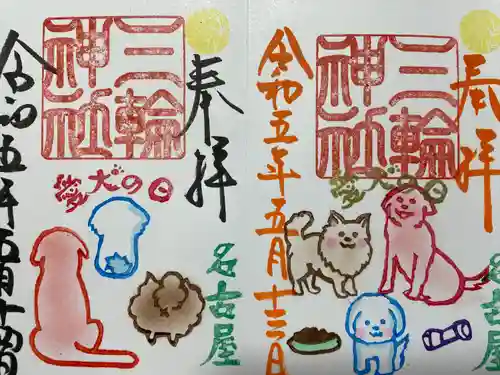 奉拝
名古屋
三輪
神社
愛犬の日
令和五年五月十四日
奉拝
名古屋
三輪
神社
愛犬の日
令和五年五月十三日